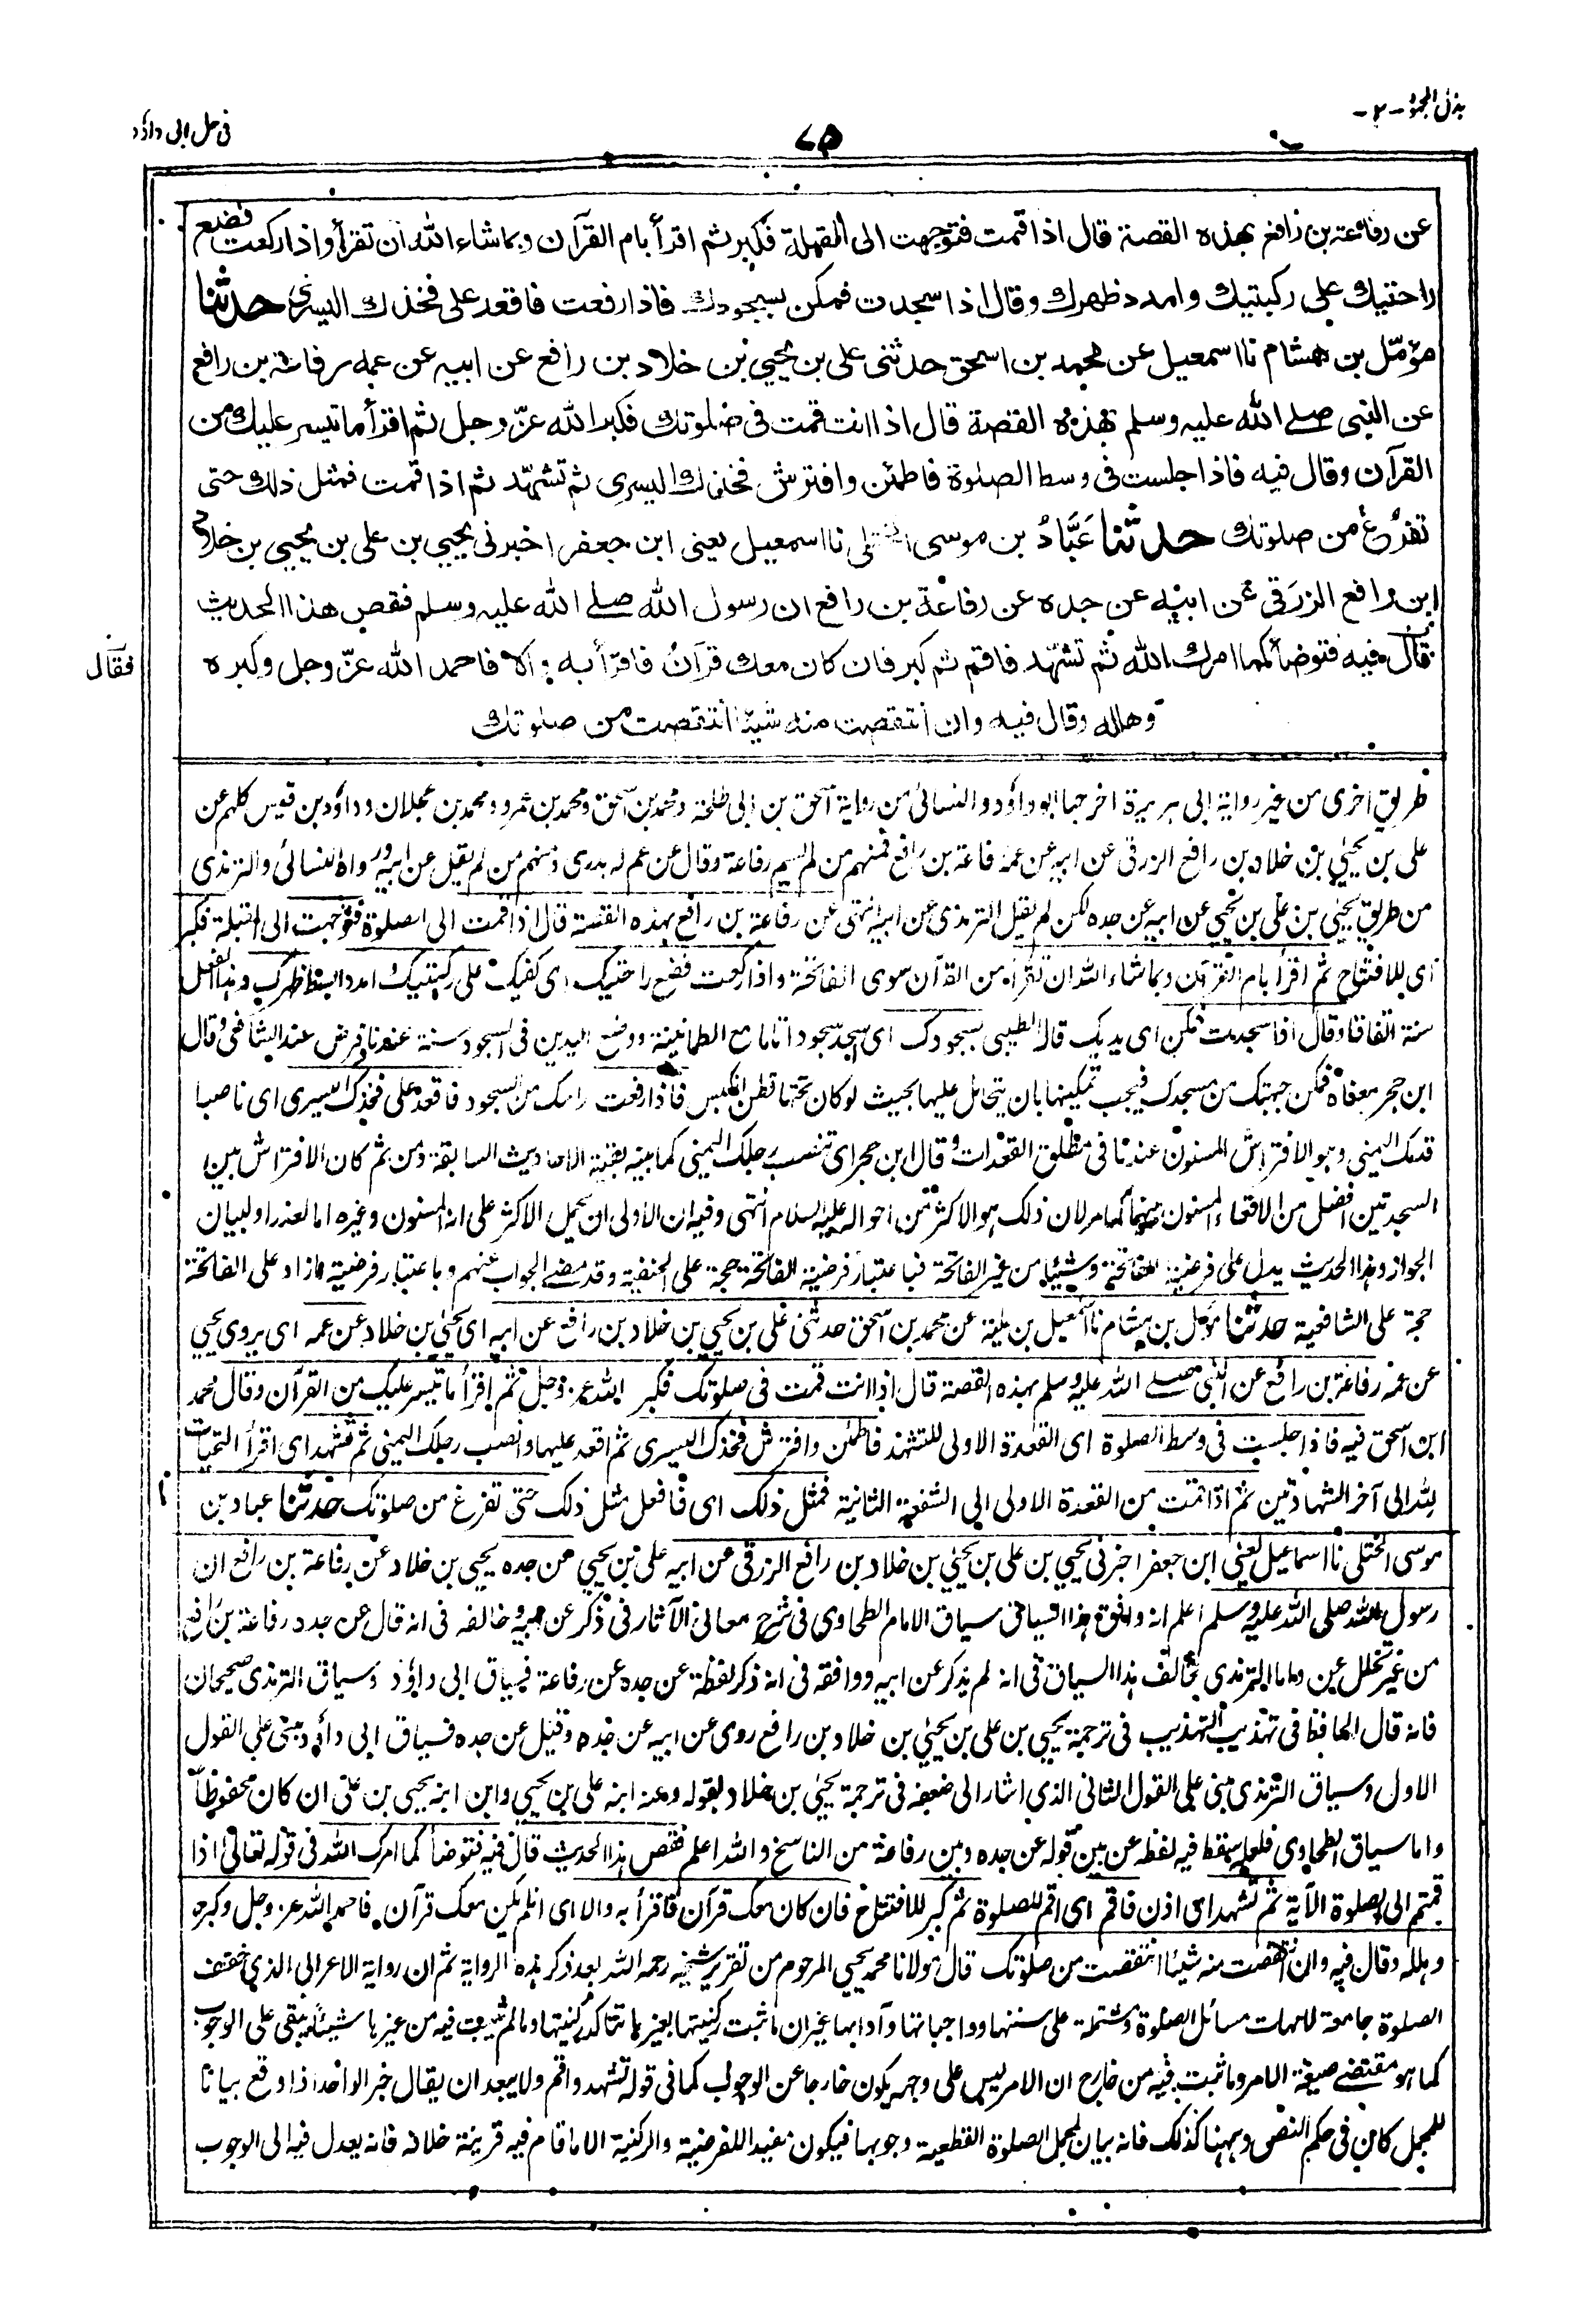 بذل المجهود -٢-
٧٥
فى حل ابى داؤد
عن رفاعة بن رافع بهذه القصة قال اذا قمت فتوجهت الى القبلة فكبر ثم اقرأ بام القرآن وبما شاء الله ان تقرأ واذا ركعت فضع
راحتيك على ركبتيك وامدد ظهرك وقال اذا سجدت فمكن لسجودك فاذا رفعت فاقعد على فخذك اليسرى حدثنا
مؤمّل بن هشام نا اسمعيل عن محمد بن اسحق حدثنى على بن يحيى بن خلاد بن رافع عن ابيه عن عمه رفاعة بن رافع
عن النبى صلے الله عليه وسلم بهذه القصة قال اذا انت قمت فى صلوتك فكبر الله عزّ وجل ثم اقرأ ما تيسر عليك من
القرآن وقال فيه فاذا جلست فى وسط الصلوة فاطمئن وافترش فخذك اليسرى ثم تشهّد ثم اذا قمت فمثل ذلك حتى
تفرُغ من صلوتك حدثنا عَبَّادُ بن موسى الختلى نا اسمعيل يعنى ابن جعفر اخبرنى يحيى بن على بن يحيى بن خلاد
ابن رافع الزرَقى عن ابيه عن جده عن رفاعة بن رافع ان رسول الله صلے الله عليه وسلم فقص هذا الحديث
قال فيه فتوضأ كما امرك الله ثم تشهّد فاقم ثم كبر فان كان معك قرآنٌ فاقرأ به والا فاحمد الله عزّ وجل وكبره
فقال
وهلله وقال فيه وان انتقصت منه شيئا انتقصت من صلوتك
طريق اخرى من غير رواية ابى هريرة اخرجها ابوداؤد والنسائى من رواية اسحق بن ابى طلحة ومحمد بن اسحق ومحمد بن عمرو ومحمد بن عجلان وداؤد بن قيس كلهم عن
على بن يحيى بن خلاد بن رافع الزرقى عن ابيه عن عمه رفاعة بن رافع فمنهم من لم يسم رفاعة وقال عن عم له بدرى ومنهم من لم يقل عن ابيه ورواه النسائى والترمذى
من طريق يحيى بن على بن يحيى عن ابيه عن جده لكن لم يقل الترمذى عن ابيه انتهى عن رفاعة بن رافع بهذه القصة قال اذا قمت الى الصلوة فتوجهت الى القبلة فكبر
اى للافتتاح ثم اقرأ بام القرآن وبما شاء الله ان تقرأ من القرآن سوى الفاتحة واذا ركعت فضع راحتيك اى كفيك على ركبتيك وامدد اى ابسط ظهرك وهذا الفعل
سنة اتفاقا وقال اذا سجدت فمكن اى يديك قاله الطيبى بسجودك اى اسجد سجودا تاما مع الطمانينة ووضع اليدين فى السجود سنة عندنا فرض عند الشافعى وقال
ابن حجر معناه فمكن جبهتك من مسجدك فيجب تمكينها بان يتحامل عليها بحيث لو كان تحتها قطن انكبس فاذا رفعت راسك من السجود فاقعد على فخذك اليسرى اى ناصبا
قدمك اليمنى وهو الافتراش المسنون عندنا فى مطلق القعدات وقال ابن حجر اى تنصب رجلك اليمنى كما بينه بقية الاحاديث السابقة ومن ثم كان الافتراش بين
السجدتين افضل من الاقعاء المسنون بينهما كما مر لان ذلك هو الاكثر من احواله عليه السلام انتهى وفيه ان الاولى ان يحمل الاكثر على انه المسنون وغيره اما لعذر او لبيان
الجواز وهذا الحديث يدل على فرضية الفاتحة وشيئا من غير الفاتحة فبا عتبار فرضية الفاتحة حجة على الحنفية وقد مضے الجواب عنهم وباعتبار فرضية ما زاد على الفاتحة
حجة على الشافعية حدثنا مؤمل بن هشام نا اسمعيل بن علية عن محمد بن اسحق حدثنى على بن يحيى بن خلاد بن رافع عن ابيه اى يحيى بن خلاد عن عمه اى يروى يحيى
عن عمه رفاعة بن رافع عن النبى صلے الله عليه وسلم بهذه القصة قال اذا انت قمت فى صلوتك فكبر الله عز وجل ثم اقرأ ما تيسر عليك من القرآن وقال محمد
ابن اسحق فيه فاذا جلست فى وسط الصلوة اى القعدة الاولى للتشهد فاطمئن وافترش فخذك اليسرى ثم اقعد عليها وانصب رجلك اليمنى ثم تشهد اى اقرأ التحيات
لله الى آخر الشهادتين ثم اذا قمت من القعدة الاولى الى الشفعة الثانية فمثل ذلك اى فافعل مثل ذلك حتى تفرغ من صلوتك حدثنا عباد بن
موسى الختلى نا اسماعيل يعنى ابن جعفر اخبرنى يحيى بن على بن يحيى بن خلاد بن رافع الزرقى عن ابيه على بن يحيى عن جده يحيى بن خلاد عن رفاعة بن رافع ان
رسول الله صلى الله عليه وسلم اعلم انه وافق هذا السياق سياق الامام الطحاوى فى شرح معانى الآثار فى ذكر عن ابيه وخالفه فى انه قال عن جده رفاعة بن رافع
من غير تخلل عن واما الترمذى خالف هذا السياق فى انه لم يذكر عن ابيه ووافقه فى انه ذكر لفظة عن جده عن رفاعة فسياق ابى داؤد وسياق الترمذى صحيحان
فانه قال الحافظ فى تهذيب التهذيب فى ترجمة يحيى بن على بن يحيى بن خلاد بن رافع روى عن ابيه عن جده وقيل عن جده فسياق ابى داؤد مبنى على القول
الاول وسياق الترمذى مبنى على القول الثانى الذى اشار الى ضعفه فى ترجمة يحيى بن خلاد بقوله وعنه ابنه على بن يحيى وابن ابنه يحيى بن على ان كان محفوظا
واما سياق الطحاوى فلعله سقط فيه لفظ عن بين قوله عن جده وبين رفاعة من الناسخ والله اعلم فقص هذا الحديث قال فيه فتوضأ كما امرك الله فى قوله تعالى اذا
قمتم الى الصلوة الآية ثم تشهد اى اذن فاقم اى اقم للصلوة ثم كبر للافتتاح فان كان معك قرآن فاقرأ به والا اى ان لم يكن معك قرآن فاحمد الله عز وجل وكبره
وهلله وقال فيه وان انتقصت منه شيئا انتقصت من صلوتك قال مولانا محمد يحيى المرحوم من تقرير شيخه رحمه الله بعد ذكر هذه الرواية ثم ان رواية الاعرابى الذى خفف
الصلوة جامعة لامهات مسائل الصلوة ومشتملة على سننها وواجباتها وآدابها غير ان ما ثبت ركنيتها بغيرها تتاكد ركنيتها وما لم يثبت فيه من غيرها شيئا يبقى على الوجوب
كما هو مقتضے صيغة الامر وما ثبت فيه من خارج ان الامر ليس على وجهه يكون خارجا عن الوجوب كما فى قوله تشهد واقم ولا يبعد ان يقال خبر الواحد اذا وقع بيانا
للمجمل كان فى حكم النص وههنا كذلك فانه بيان لمجمل الصلوة القطعية وجوبها فيكون مفيدا للفرضية والركنية الا ما قام فيه قرينة خلافه فانه يعدل فيه الى الوجوب